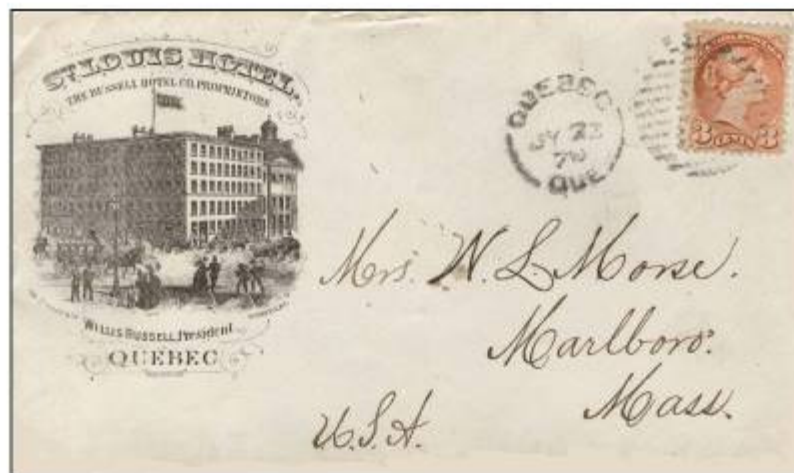 ST. LOUIS HOTEL.
THE RUSSELL HOTEL CO. PROPRIETORS
WILLIS RUSSELL, President
QUEBEC
QUEBEC
JY 23
79
QUE
3 CENTS 3
Mrs. W. L. Morse.
Marlboro.
Mass.
U.S.A.